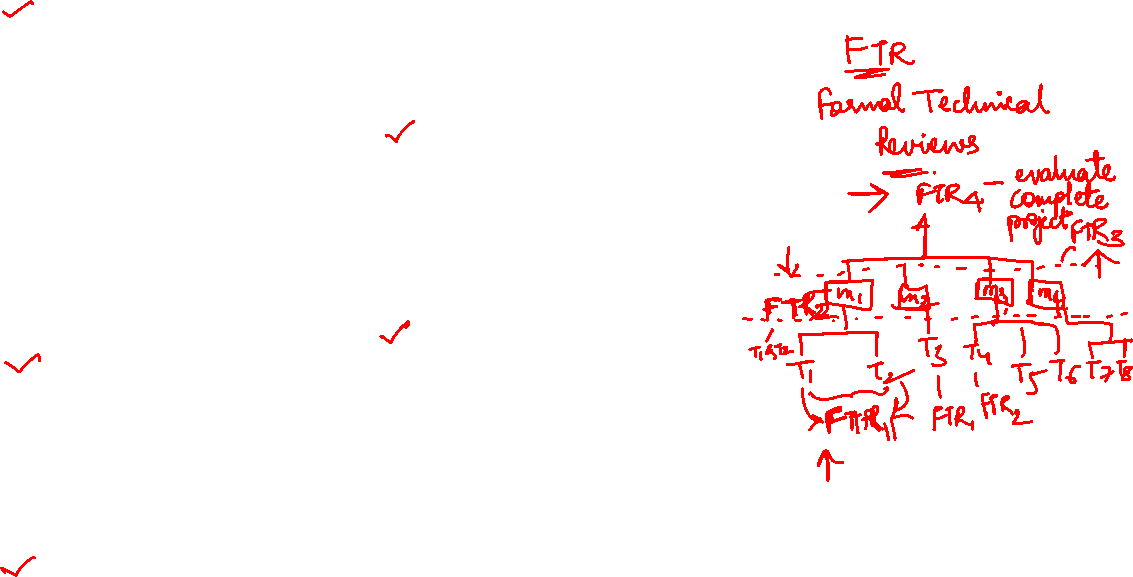 FTR
Formal Technical
Reviews
→ FTR4 - evaluate
complete
project
FTR3
m1 m2 m3 m4
FTR2
T1 & T2
T1 T2 T3 T4 T5 - T6 T7 T8
FTR1 FTR1 FTR2